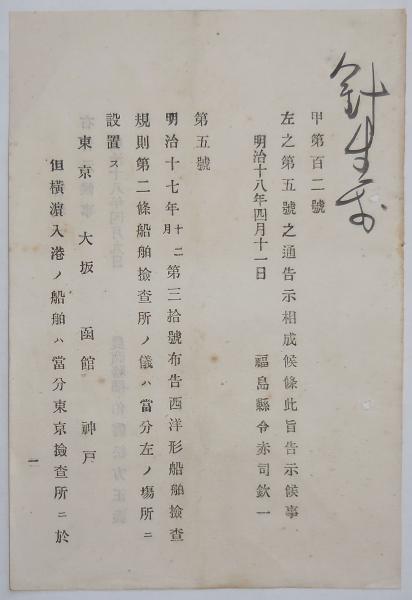 針生村
甲第百二號
左之第五號之通告示相成候條此旨告示候事
明治十八年四月十一日
福島縣令赤司欽一
第五號
明治十七年十二月第三拾號布告西洋形船舶撿查
規則第二條船舶撿查所ノ儀ハ當分左ノ塲所ニ
設置ス
東京 大坂 函館 神戸
但橫濵入港ノ船舶ハ當分東京撿查所ニ於
一